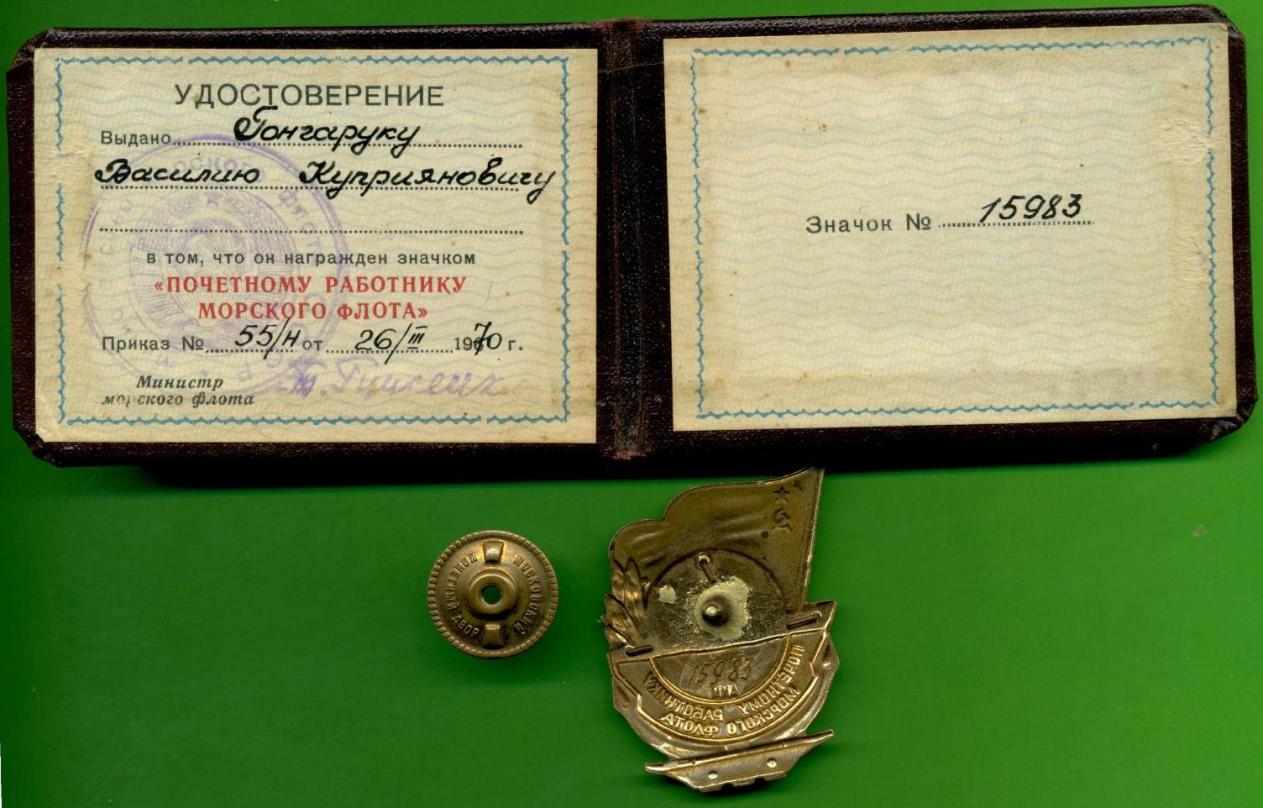 УДОСТОВЕРЕНИЕ
Выдано Гончаруку
Василию Куприяновичу
в том, что он награжден значком
«ПОЧЕТНОМУ РАБОТНИКУ
МОРСКОГО ФЛОТА»
Приказ № 55/н от 26/III 1970 г.
Министр
морского флота
Значок № 15983
МОСКОВСКИЙ
МОНЕТНЫЙ ДВОР
15983
ПОЧЕТНОМУ РАБОТНИКУ
МОРСКОГО ФЛОТА